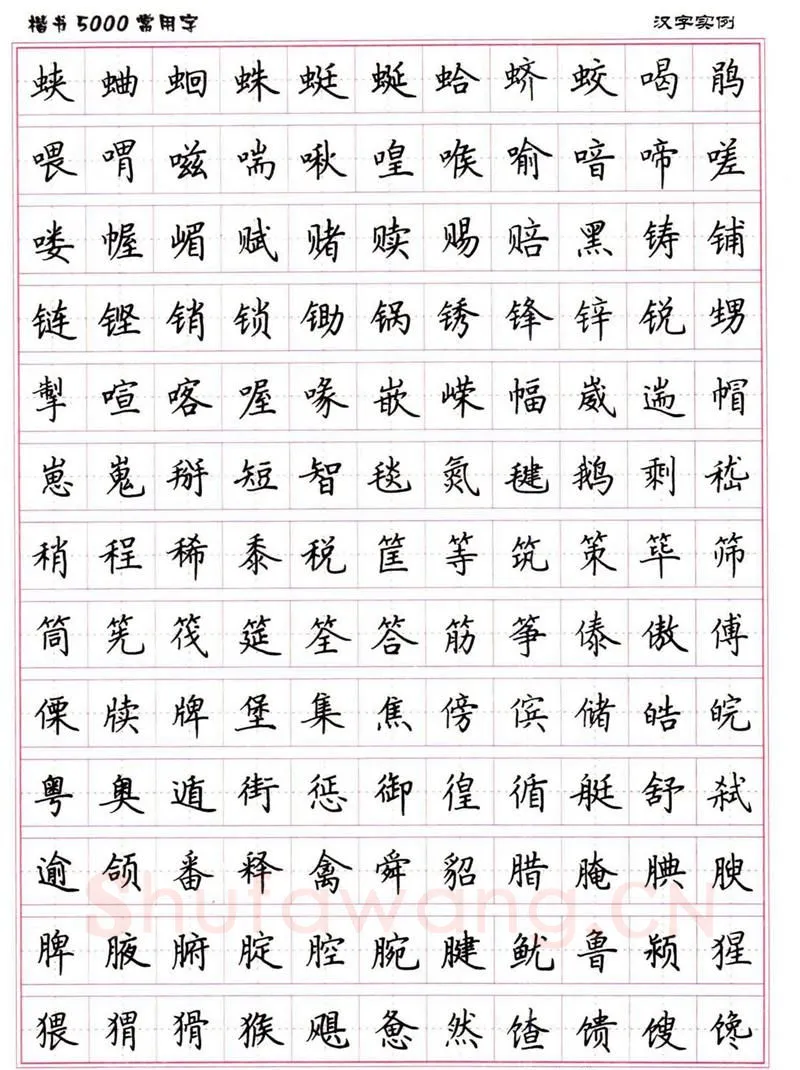 楷书5000常用字 汉字实例
蛱 蛐 蛔 蛛 蜓 蜒 蛤 蛴 蛟 喝 鹃
喂 喟 嗞 喘 啾 喤 喉 喻 喑 啼 嗟
喽 幄 嵋 赋 赌 赎 赐 赔 黑 铸 铺
链 铿 销 锁 锄 锅 锈 锋 锌 锐 甥
掣 喧 喀 喔 喙 嵌 嵘 幅 崴 遄 帽
崽 嵬 掰 短 智 毯 氮 毽 鹅 剩 嵇
稍 程 稀 黍 税 筐 等 筑 策 筚 筛
筒 筅 筏 筵 筌 答 筋 筝 傣 傲 傅
傈 牍 牌 堡 集 焦 傍 傧 储 皓 皖
粤 奥 遁 街 惩 御 徨 循 艇 舒 弑
逾 颌 番 释 禽 舜 貂 腊 腌 腆 腴
脾 腋 腑 腚 腔 腕 腱 鱿 鲁 颍 猩
猥 猬 猾 猴 飓 惫 然 馇 馈 馊 馋
Shufawang.CN